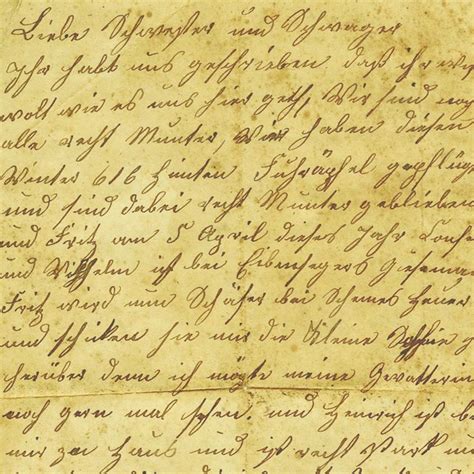 Liebe Schwester und Schwager
Ihr habt uns geschrieben daß ihr
wolt wie es uns hier geth, Wir sind
alle recht Munter, Wir haben diesen
Winter 616 Himten gepflüg
und sind dabei recht Munter geblieben
und Fritz am 5 April dieses Jahr Conf
und Wilhelm ist bei
Fritz wird nun Schäfer bei
und schicken sie mir die kleine Sophie
herüber denn ich mögte meine Gevatterin
noch gern mal sehen. und Heinrich ist
mir zu Haus und ist recht Stark